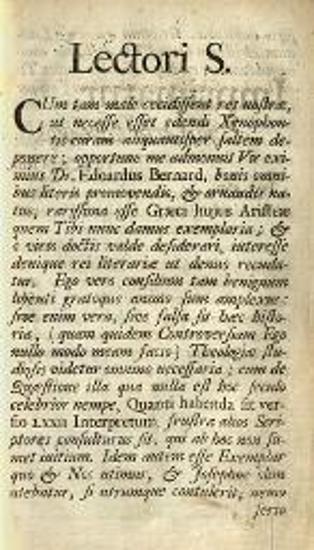 Lectori S.
CUm tam male cecidissent res nostræ,
ut necesse esset edendi Xenophon-
tis curam aliquantisper saltem de-
ponere; opportune me admonuit Vir exi-
mius Dr. Edoardus Bernard, bonis omni-
bus literis promovendis, & ornandis na-
tus, rarissima esse Græci hujus Aristeæ
quem Tibi nunc damus exemplaria; &
a viris doctis valde desiderari, interesse
denique rei literariæ ut denuo recuda-
tur. Ego vero consilium tam benignum
libenti gratoque animo sum amplexus:
sive enim vera, sive falsa sit hæc histo-
ria, (quam quidem Controversiam Ego
nullo modo meam facio) Theologiæ stu-
diosis videtur omnino necessaria; cum de
Quæstione illa qua nulla est hoc seculo
celebrior nempe, Quanti habenda sit ver-
sio LXXII Interpretum, frustra alios Scri-
ptores consulturus sit, qui ab hoc non su-
met initium. Idem autem esse Exemplar
quo & Nos utimur, & Josephus olim
utebatur, si utrumque contulerit, nemo